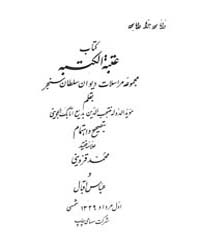 کتاب
عتبة الکتبه
مجموعه مراسلات دیوان سلطان سنجر
بقلم
مؤید الدوله منتجب الدین بدیع اتابک الجوینی
بتصحیح و اهتمام
علامه فقید
محمد قزوینی
و
عباس اقبال
اول مرداد ۱۳۲۹ شمسی
شرکت سهامی چاپ